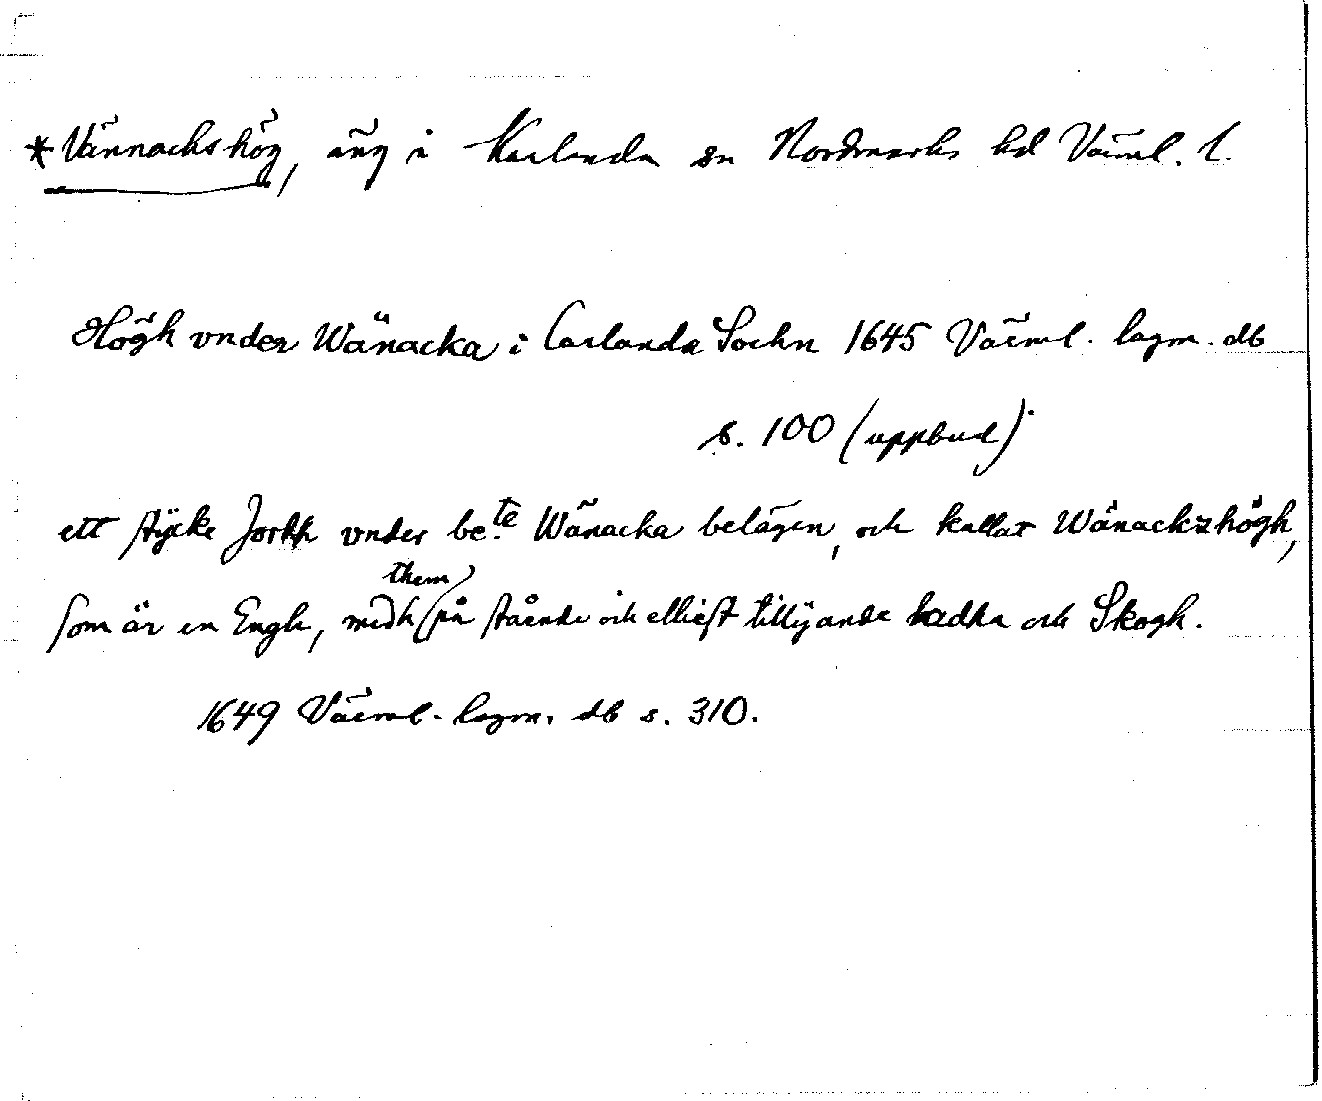 *Vännackshög, äng i Karlanda sn Nordmarks hd Värml. l.
Högh vnder Wänacka i Carlanda Sochn 1645 Värml. lagm. db
s. 100 (uppbud)
ett stÿcke Jordh vnder be:te Wänacka belägen, och kallat Wänackzhögh,
som är en Engh, medh them på stående och elliest tillÿande ladha och Skogh.
1649 Värml. lagm. db s. 310.